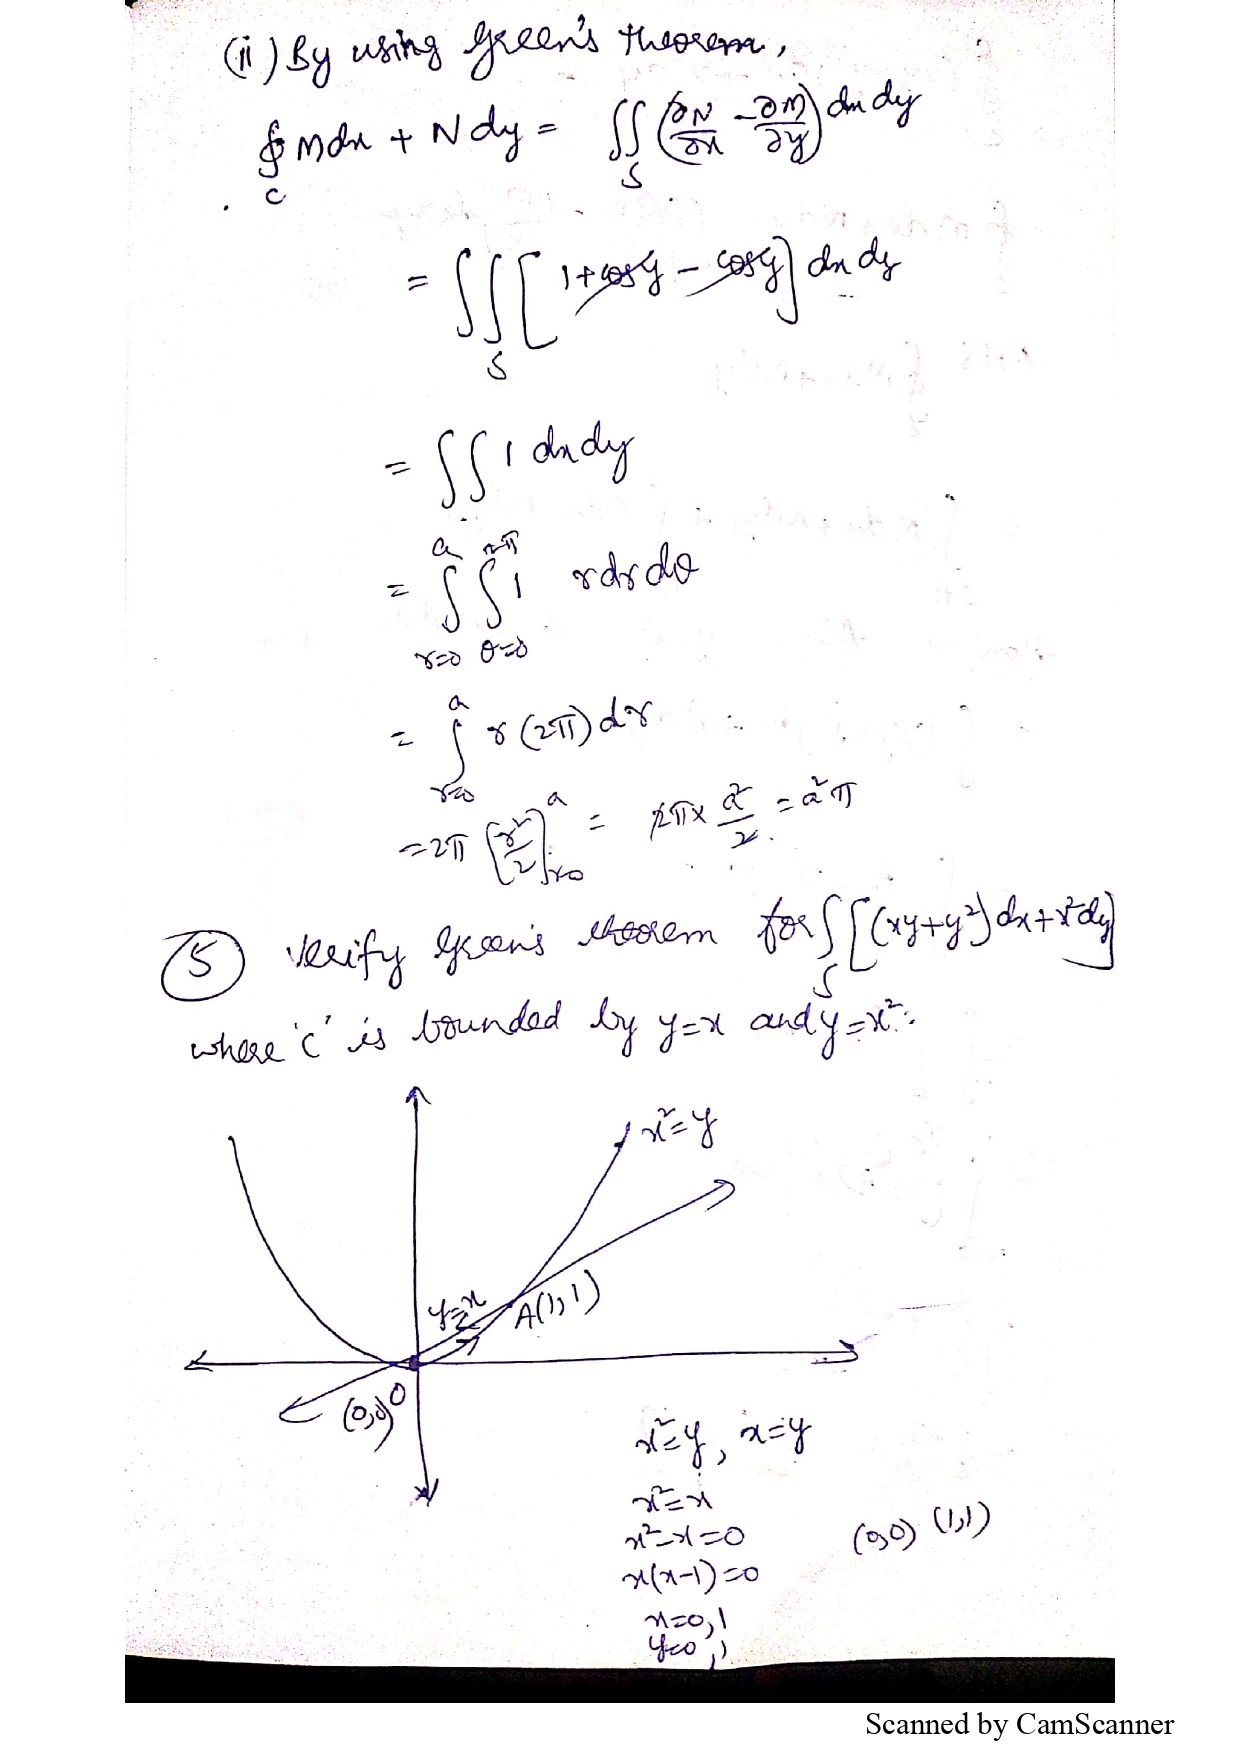 (ii) By using Green's theorem,
∮_C Mdx + Ndy = ∬_S (∂N/∂x - ∂M/∂y) dx dy
= ∬_S [1+cosy - cosy] dx dy
= ∬ 1 dxdy
= ∫_{r=0}^{a} ∫_{θ=0}^{2π} 1 rdrdθ
= ∫_{r=0}^{a} r(2π)dr
= 2π [r²/2]_{r=0}^{a} = 2π x a²/2 = a²π
(5) Verify Green's theorem for ∫_S [(xy+y²)dx+x²dy]
where 'c' is bounded by y=x and y=x².
x²=y
y=x
A(1,1)
(0,0) O
x²=y, x=y
x²=x
x²-x=0
(0,0) (1,1)
x(x-1)=0
x=0,1
y=0,1
Scanned by CamScanner